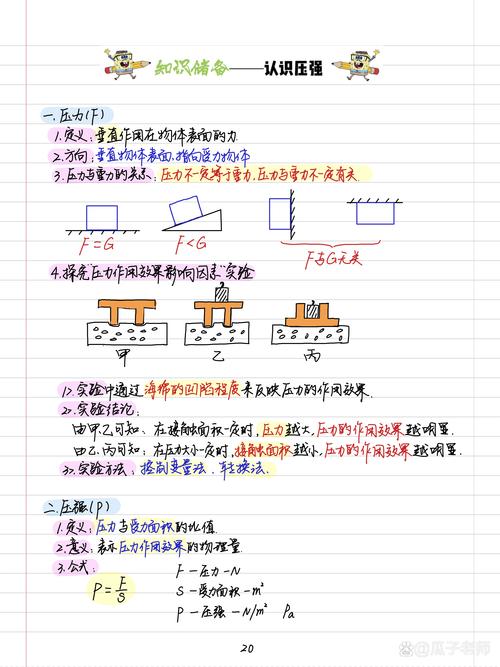 知识储备——认识压强
一.压力(F)
1.定义:垂直作用在物体表面的力.
2.方向:垂直物体表面,指向受力物体
3.压力与重力的关系:压力不一定等于重力,压力与重力不一定有关.
F=G
F<G
F与G无关
4.探究"压力作用效果影响因素"实验
甲
乙
丙
1>.实验中通过海绵的凹陷程度来反映压力的作用效果.
2>.实验结论:
由甲.乙可知:在接触面积一定时,压力越大,压力的作用效果越明显.
由乙.丙可知:在压力大小一定时,接触面积越小,压力的作用效果越明显.
3>.实验方法:控制变量法.转换法.
二.压强(P)
1.定义:压力与受力面积的比值.
2.意义:表示压力作用效果的物理量.
3.公式:
P=F/S
F—压力—N
S—受力面积—m²
P—压强—N/m² Pa
20
@瓜子老师